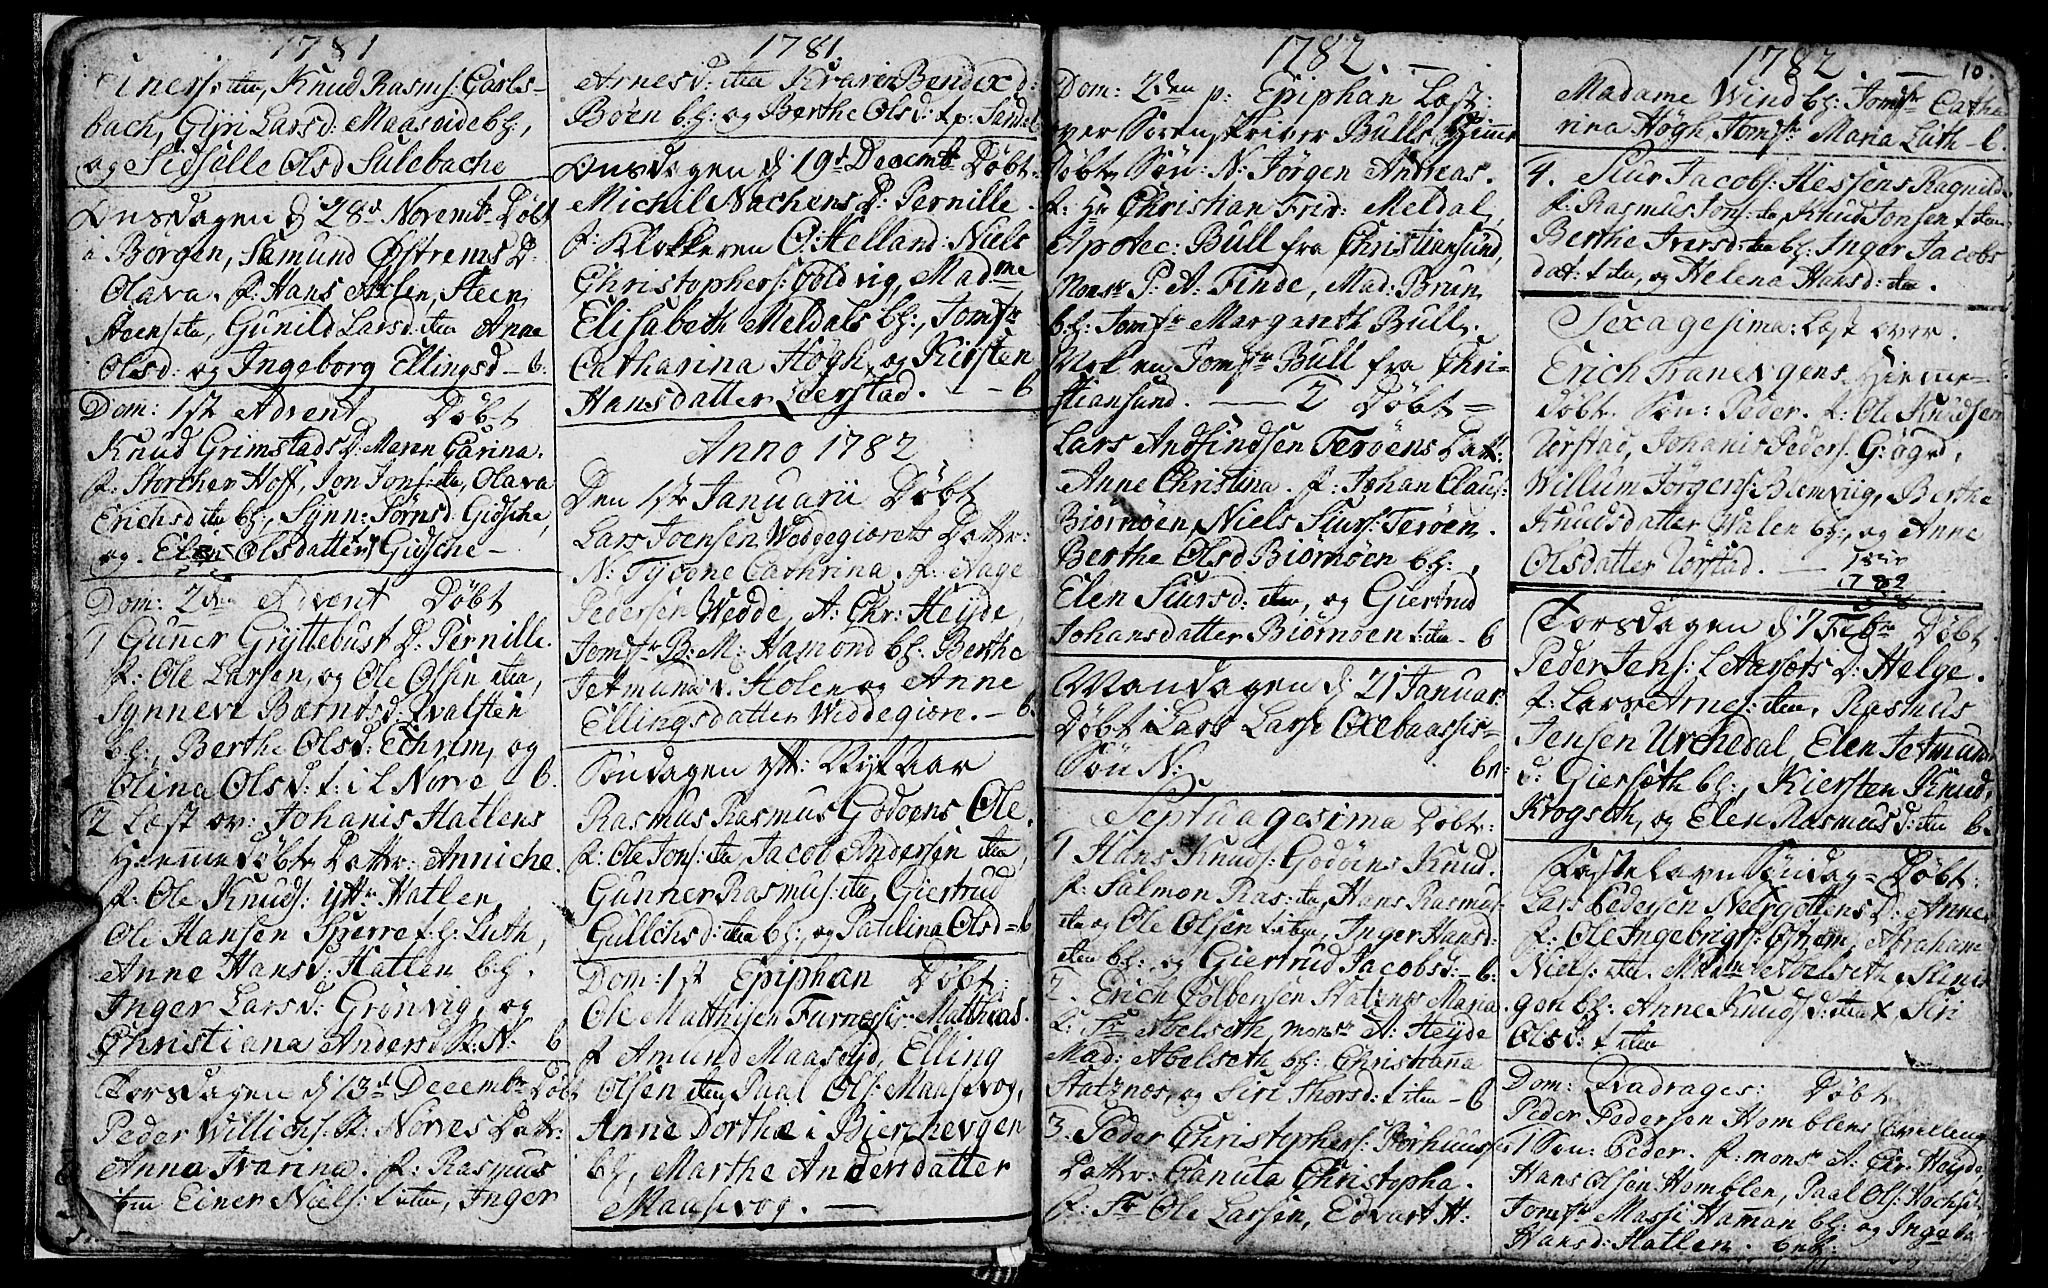 1781
Einers: ibn, Knud Rasms: Carls-
bach, Gjøri Larsd: Maaseide bf:,
og Sidselle Olsd Sulebache
Onsdagen d: 28d Novembr Døbt
i Borgen, Samund Østrems D:
Olava. f: Hans Aalen, Steen
Steens ibn, Gunild Larsd: ibn Anne
Olsd: og Ingeborg Ellingsd - 6.
Dom: 1ste Advent Døbt
Knud Grimstads D: Maren Carina.
f: Storcher Hoff, Jon Jons: ibn, Olava
Erichsd ibn bf:, Synn: Sørnsd. Gidsche,
og Elen Olsdatter Gidsche -
Dom: 2den Advent Døbt
1 Gunner Gryttebust D: Pernille.
f: Ole Larsen, og Ole Olsen ibn,
Synneve Bærntsd Qvalsten
bf:, Berthe Olsd: Echrem, og
Olina Olsd: t: i L Norve 6.
2 Læst ov: Johanis Hatlens
Hiemmedøbt Dattr: Anniche.
f: Ole Knuds: yttr Hatlen,
Ole Hansen Sperre t: h: Luth,
Anne Hansd: Hatlen bf:
Inger Larsd: Grønvig, og
Christiana Andersd R: N: 6
Torsdagen d: 13d Decembr Døbt
Peder Willichs: R: Norves Dattr:
Anna Ivarina. f: Rasmus
ibn Edner Niels: t: ibn, Inger
1781
Arnesd: ibn Kraren Bendex d:
Böen bf: og Berthe Olsd: t p: Sande
Onsdagen d: 19d Decembr Døbt
Michil Nachens D: Pernille.
f: Klokkeren O: Helland: Niels
Christophers: Voldvig, Madme
Elisabeth Meldals bf:, Jomfr
Catharina Högh, og Kirsten
Hansdatter Ierstad. - 6
Anno 1782
Den 1ste Januarii Døbt
Lars Joensen Weddegiørets Dattr:
N: Tyvone Cathrina. f: Aage
Pedersen Wedde, A: Chr: Heyde,
Jomfr B: M: Hamond bf: Berthe
Jetmundsd: Holen og Anne
Ellingsdatter Weddegiøre. - 6.
Søndagen eft: Nyt Aar
Rasmus Rasmus Godöens Ole.
f: Ole Jons: ibn Jacob Andersen ibn,
Gunner Rasmus: ibn, Giertrud
Gullichsd: ibn bf:, og Paulina Olsd = 6
Dom: 1ste Epiphan Døbt
Ole Matthisen Furnesses Mathias.
f: Amund Maaseid, Elling
Olsen ibn Paal Ols: Maasevog,
Anne Dorthæ i Bierchevogen
bf:, Marthe Andersdatter
Maasevog. -
1782. -
Dom: 2den p: Epiphan Læst
over Sörenskriver Bulls Hiemme
Døbte Søn: N: Jörgen Andreas.
f: Hr Christian Frid: Meldal,
Apotec: Bull fra Christiansund,
Monsr P: A: Finde, Mad: Brun
bf: Jomfr Margareth Bull.
Molen Jomfr Bull fra Chri-
stiansund. - 2 Døbt =
Lars Andfindsen Teröens Datt:
Anne Christina. f: Johan Claus:
Biörnöen, Niels Siurs: Teröen.
Berthe Olsd Biörnöen bf:,
Elen Siursd: ibn, og Giertrud
Johansdatter Biörnöen t: ibn - 6
Mandagen d: 21 Januar:
Døbt Lars Larss: Oxebaassis-
Søn N: 6n:
Septuagesima Døbt:
1 Hans Knuds: Godöens Knud.
f: Salmon Ras: ibn, Hans Rasmus:
ibn og Ole Olsen t: ibn, Inger Hansd:
ibn bf:, og Giertrud Jacobsd: - 6.
2. Erich Colbensen Statznes Maria.
f: Sr Abelseth, monsr A: Heyde
Mad: Abelseth bf: Christiana
Statznes, og Siri Thorsd: t: ibn - 6
3. Peder Christophers: Størhuus
Dattr: Canuta Christopha.
f: Sr Ole Larsen, Edvart H:
1782. - 10.
Madame Wind bf: Jomfr Catha
rina Högh Jomfr Maria Luth - 6.
4. Siur Jacobs: Hessens Ragnilde
f: Rasmus Jons: ibn Knud Jonsen t ibn
Berthe Iversd: ibn bf: Inger Jacobs
dat: t ibn, og Helena Hansd: ibn.
Sexagesima: Læst over.
Erich Tranevogens Hiemme-
døbt. Søn: Peder. f: Ole Knudsen
Uerstad, Johanis Peders: Gögrd,
Willum Jörgens: Blemviig, Berthe
Knudsdatter Walen bf:, og Anne
Olsdatter Uerstad. -
1782
Torsdagen d: 7 Febr Døbt.
Peder Jens: L Aarøts D: Helge.
f: Lars Arnes: ibn, Rasmus
Jensen Urchedal, Elen Jetmund
d: Gierseth bf:, Kiersten Knud,
Krogseth, og Elen Rasmusd: ibn 6.
Fastelavn Søndag = Døbt:
Lars Pedersen Nørgottens D: Anne,
f: Ole Ingebrigs: Osnem, Abraham
Niels: ibn. Madm Abelseth Slini
gen bf: Anne Knudsd: ibn & Siri
Olsd: t ibn
Dom: Qvadrages: Døbt
Peder Pedersen Homblens tvilling
1 Søn: Peder. f: monsr A: Chr: Heyde,
Hans Olsen Homblen, Paal Ols: Hochsel
Jomfr Massi Haman bf: og Ingeba
Hansd: Hatlen. 6nf: